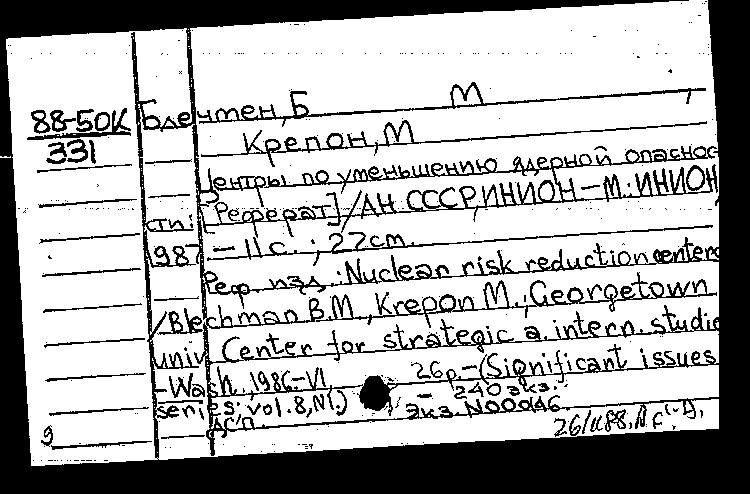 88-50К
331
Блечмен, Б М
Крепон, М
Центры по уменьшению ядерной опаснос-
сти: [Реферат]/АН СССР, ИНИОН.-М.: ИНИОН,
1987.-11с.; 27см.
Реф. изд.: Nuclear risk reduction centers
/Blechman B.M., Krepon M.; Georgetown
univ. Center for strategic a. intern. studies
-Wash., 1986.-VI, 26p.-(Significant issues
series: vol.8, N1.) - 240 экз.
ДСП. Экз. N00046.
9